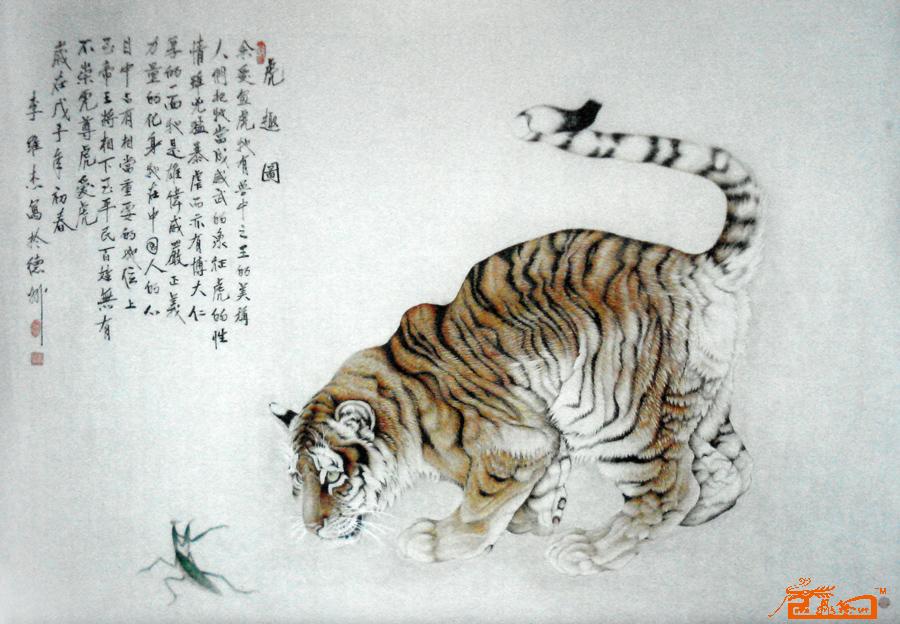 虎趣圖
余爱画虎虎有兽中之王的美称
人們把牠當成威武的象征虎的性
情雖兇猛暴虐而亦有博大仁
厚的一面牠是雄偉威嚴正義
力量的化身牠在中国人的心
目中占有相當重要的地位上
至帝王将相下至平民百姓無有
不崇虎尊虎爱虎
歲在戊子年初春
李維杰寫於德州